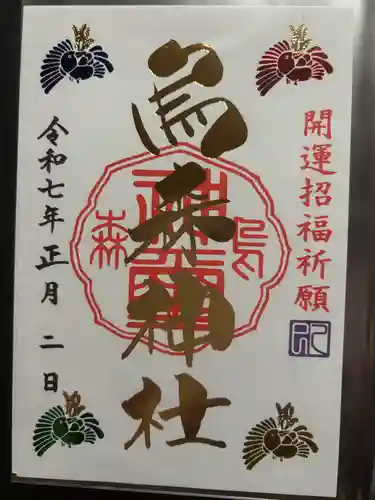 開運招福祈願
烏森神社
烏森
令和七年正月二日